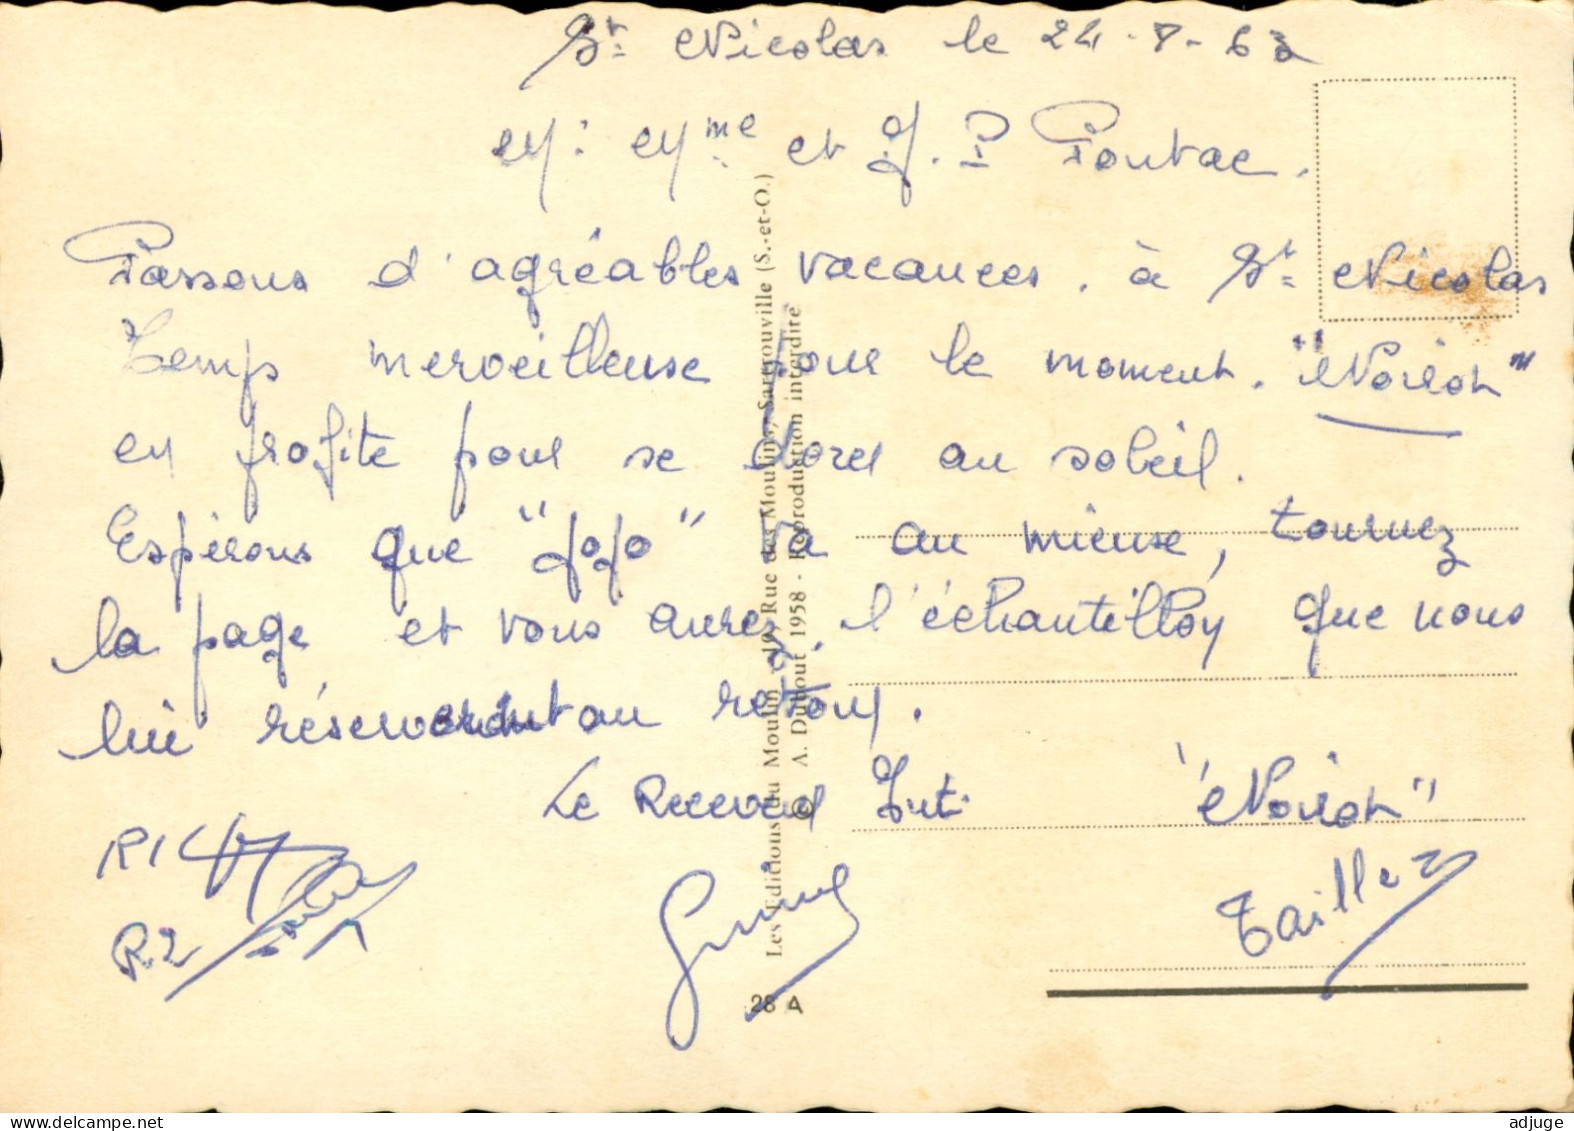 St Nicolas le 24-8-63
M. Mme et J. P Pontac.
Passons d'agréables vacances. à St Nicolas
Temps merveilleuse pour le moment. "Noiron"
en profite pour se dorer au soleil.
Espérons que "Jojo" va au mieuse, tournez
la page et vous aurez l'échantillon que nous
lui réservons au retour.
Le Receveur Int. "Noiron"
R1
R2
Taillez
Les Editions du Moulin, 19, Rue des Moulins, Sartrouville (S.-et-O.)
© A. Dubout 1958 - Reproduction interdite
28 A
adjuge.com